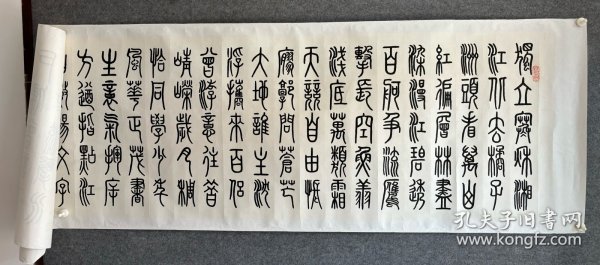 獨立寒秌湘
江北去橘子
洲頭看萬山
紅徧層林盡
染漫江碧透
百舸爭流鷹
擊長空魚翔
淺底萬類霜
天競自由悵
寥廓問蒼茫
大地誰主沈
浮攜來百侶
曾游憶往昔
崢嶸歲月稠
恰同學少年
風華正茂書
生意氣揮斥
方遒指點江
山激揚文字
孔夫子旧书网
www.kongfz.com